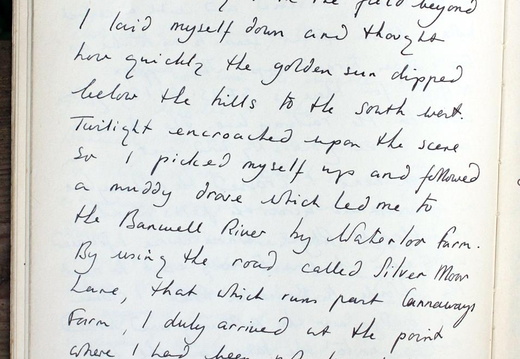 the field beyond
I laid myself down and thought
how quickly the golden sun dipped
below the hills to the south west.
Twilight encroached upon the scene
so I picked myself up and followed
a muddy drove which led me to
the Banwell River by Waterloo Farm.
By using the road called Silver Moor
Lane, that which runs past Gannaways
Farm, I duly arrived at the point
where I had been